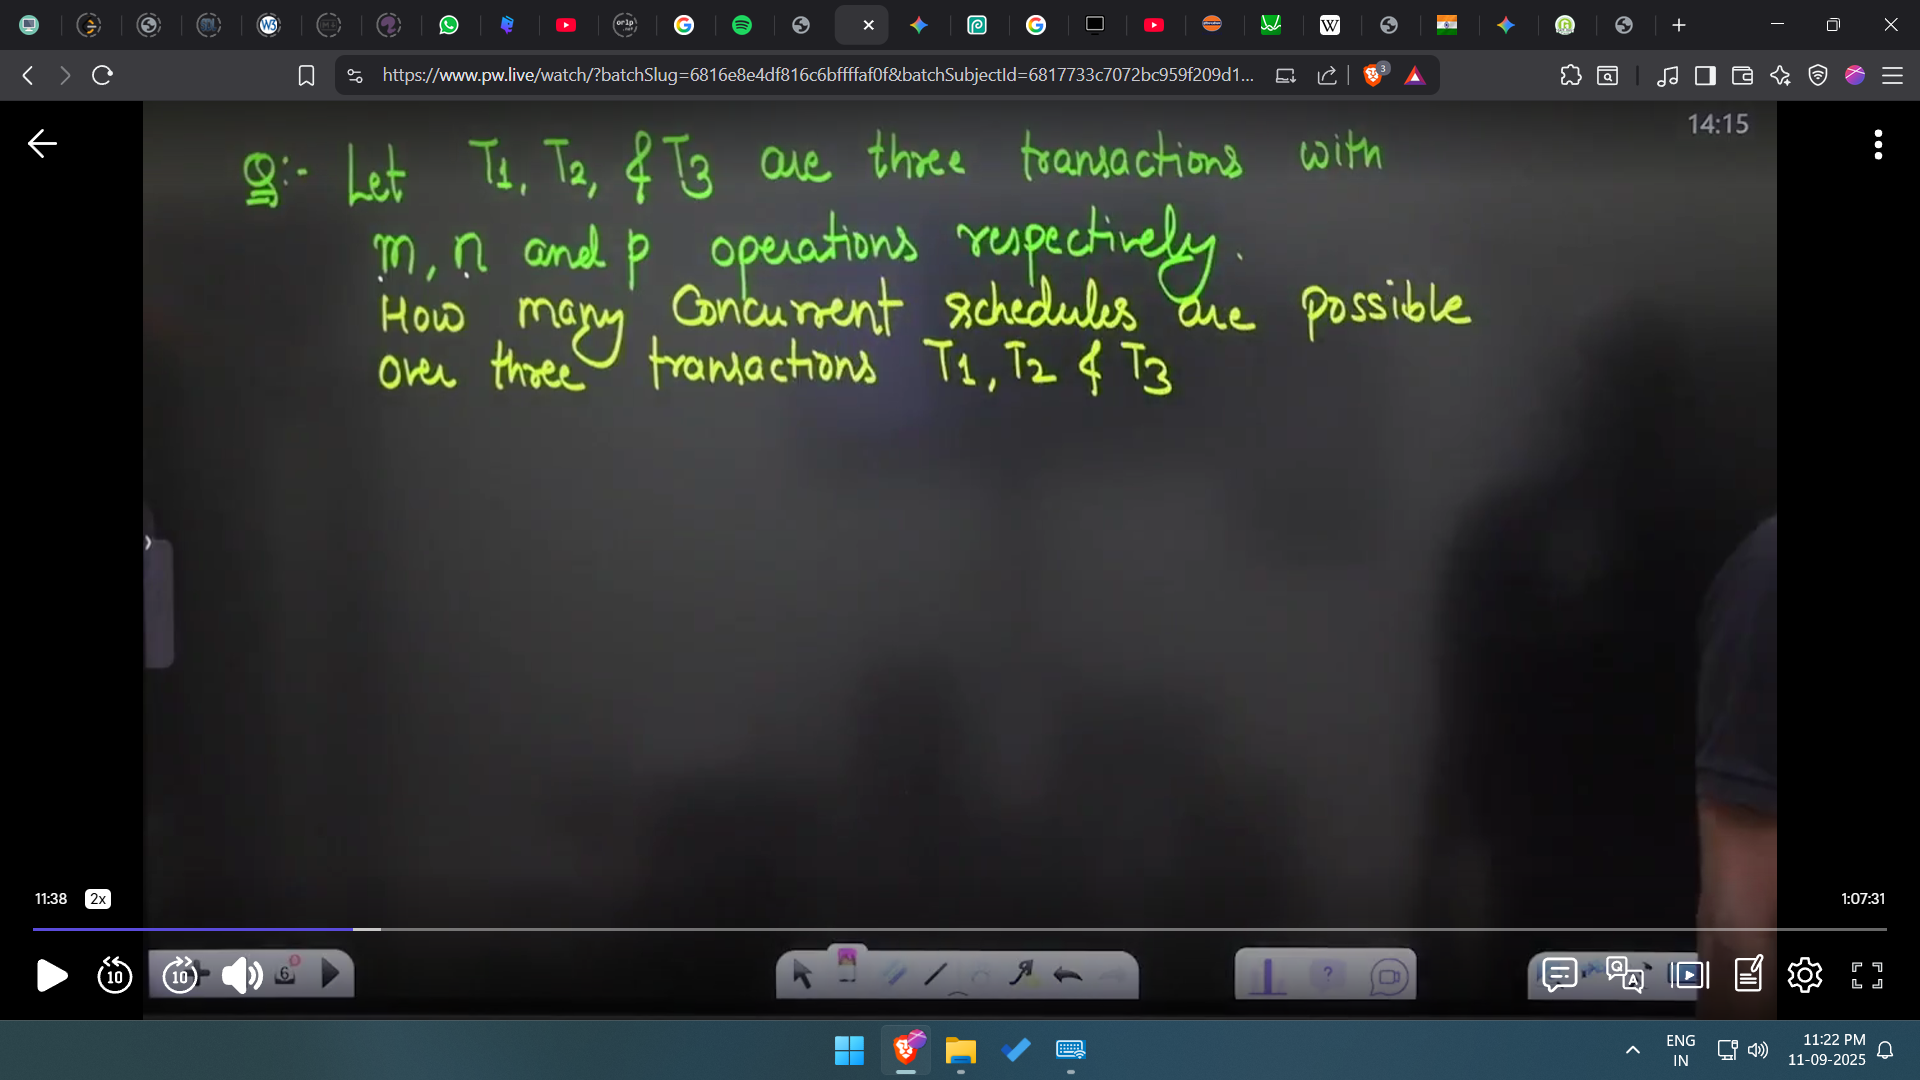 https://www.pw.live/watch/?batchSlug=6816e8e4df816c6bffffaf0f&batchSubjectId=6817733c7072bc959f209d1...
3
14:15
Q:- Let T1, T2, & T3 are three transactions with
m, n and p operations respectively.
How many Concurrent schedules are possible
over three transactions T1, T2 & T3
11:38 2x 1:07:31
10 10 6
ENG
IN
11:22 PM
11-09-2025